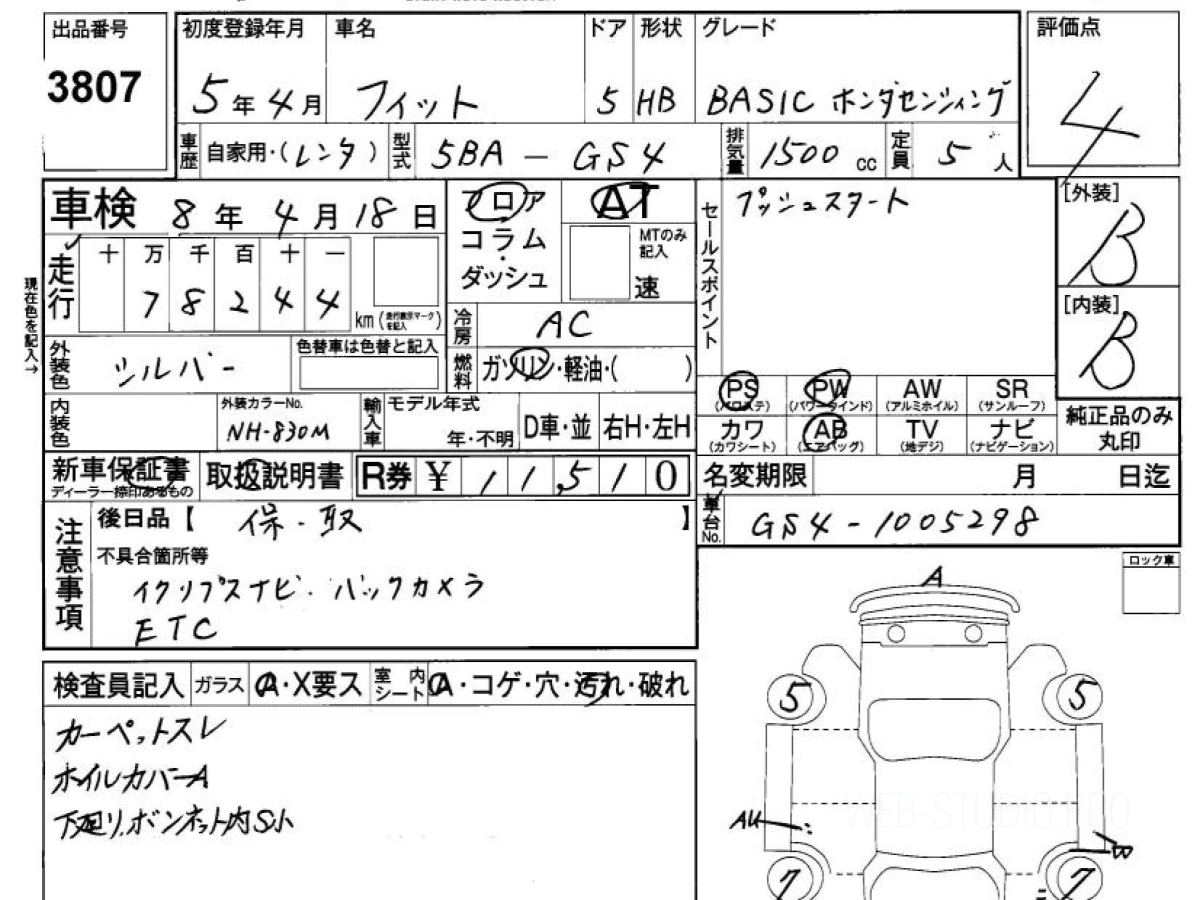 出品番号 初度登録年月 車名 ドア 形状 グレード 評価点
3807 5年4月 フィット 5 HB BASIC ホンダセンシィング 4
車歴 自家用・(レンタ) 型式 5BA - GS4 排気量 1500 cc 定員 5 人
車検 8年4月18日 フロア AT セールスポイント プッシュスタート [外装] B
コラム・ MTのみ記入
ダッシュ 速
走行 十 万 千 百 十 一
7 8 2 4 4 km (走行表示マークを記入) [内装] B
現在色を記入→
冷房 AC
外装色 シルバー 色替車は色替と記入 燃料 ガソリン・軽油・( )
PS (パワステ) PW (パワーウインド) AW (アルミホイル) SR (サンルーフ)
内装色 外装カラーNo. NH-830M 輸入車 モデル年式 年・不明 D車・並 右H・左H
カワ (カワシート) AB (エアバッグ) TV (地デジ) ナビ (ナビゲーション) 純正品のみ丸印
新車保証書 ディーラー捺印あるもの 取扱説明書 R券 ¥ 11,510 名変期限 月 日迄
注意事項 後日品【 保・取 】 車台No. GS4-1005298
不具合箇所等
イクリプスナビ・バックカメラ
ETC
ロック車
A
検査員記入 ガラス A・X要ス 室内シート A・コゲ・穴・汚れ・破れ
カーペットスレ
ホイルカバーA
下廻り、ボンネット内S小
5 5
WEB-STUDIO.PRO
AU
W
7 7